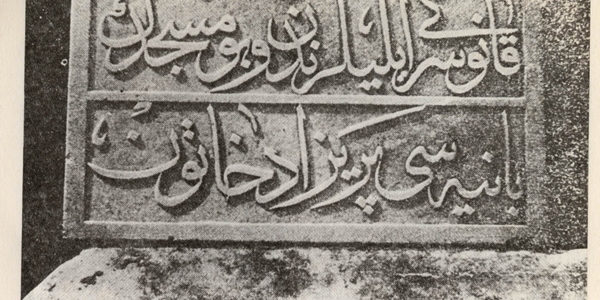 قانونی سرایلیلرندن و بو مسجدڭ
بانیه سی پریزاد خاتون